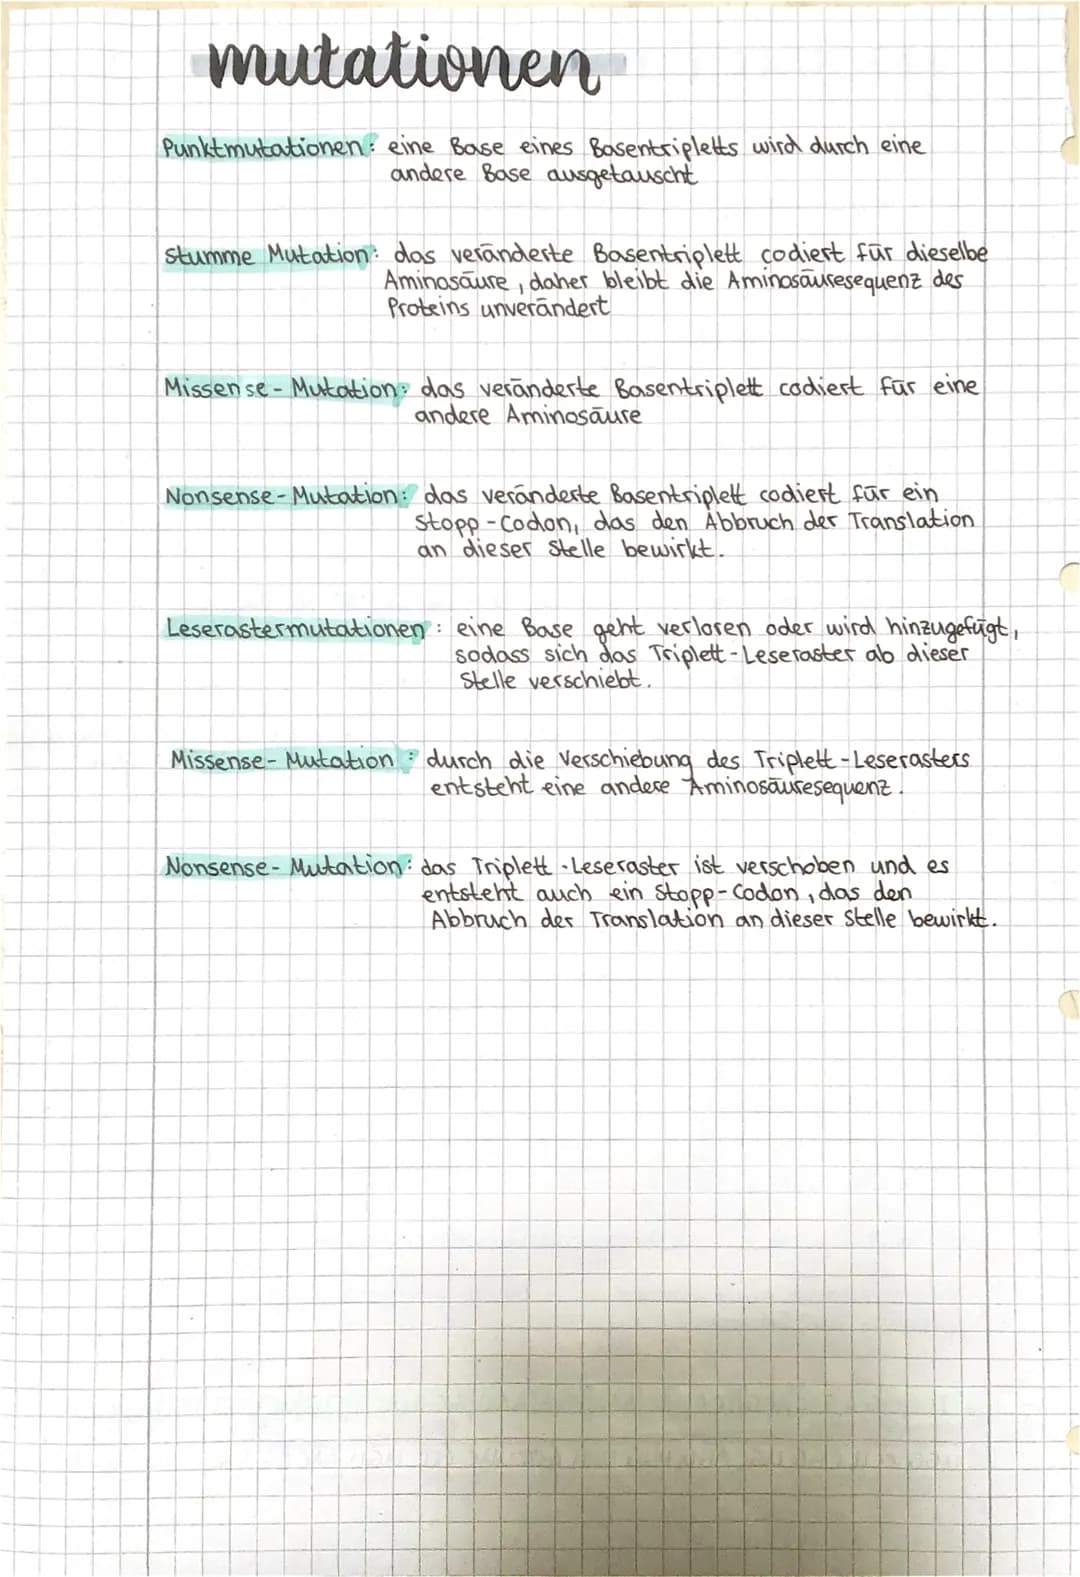 mutationen
Punktmutationen: eine Base eines Basentripletts wird durch eine
andere Base ausgetauscht
Stumme Mutation: das veränderte Basentriplett codiert für dieselbe
Aminosäure, daher bleibt die Aminosäuresequenz des
Proteins unverändert
Missense-Mutation: das veränderte Basentriplett codiert für eine
andere Aminosäure
Nonsense-Mutation: das veränderte Basentriplett codiert für ein
Stopp-Codon, das den Abbruch der Translation
an dieser Stelle bewirkt.
Leserastermutationen: eine Base geht verloren oder wird hinzugefügt,
sodass sich das Triplett-Leseraster ab dieser
Stelle verschiebt.
Missense-Mutation: durch die Verschiebung des Triplett-Leserasters
entsteht eine andere Aminosäuresequenz.
Nonsense-Mutation: das Triplett-Leseraster ist verschoben und es
entsteht auch ein Stopp-Codon, das den
Abbruch der Translation an dieser Stelle bewirkt.